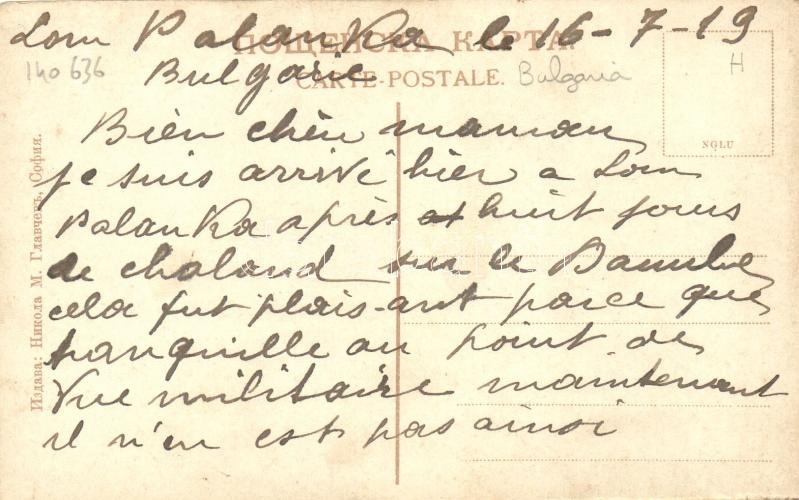 Lom Palanka le 16-7-19
ПОЩЕНСКА КАРТА
140 636
Bulgarie
CARTE-POSTALE.
Bulgaria
H
NGLU
Bien chèr maman
je suis arrivé hier a Lom
Palanka après huit jours
de chaland sur le Danube
cela fut plais-ant parce que
tranquille au point de
vue militaire maintenant
il n'en est pas ainsi
Издава: Никола М. Главчевъ, София.